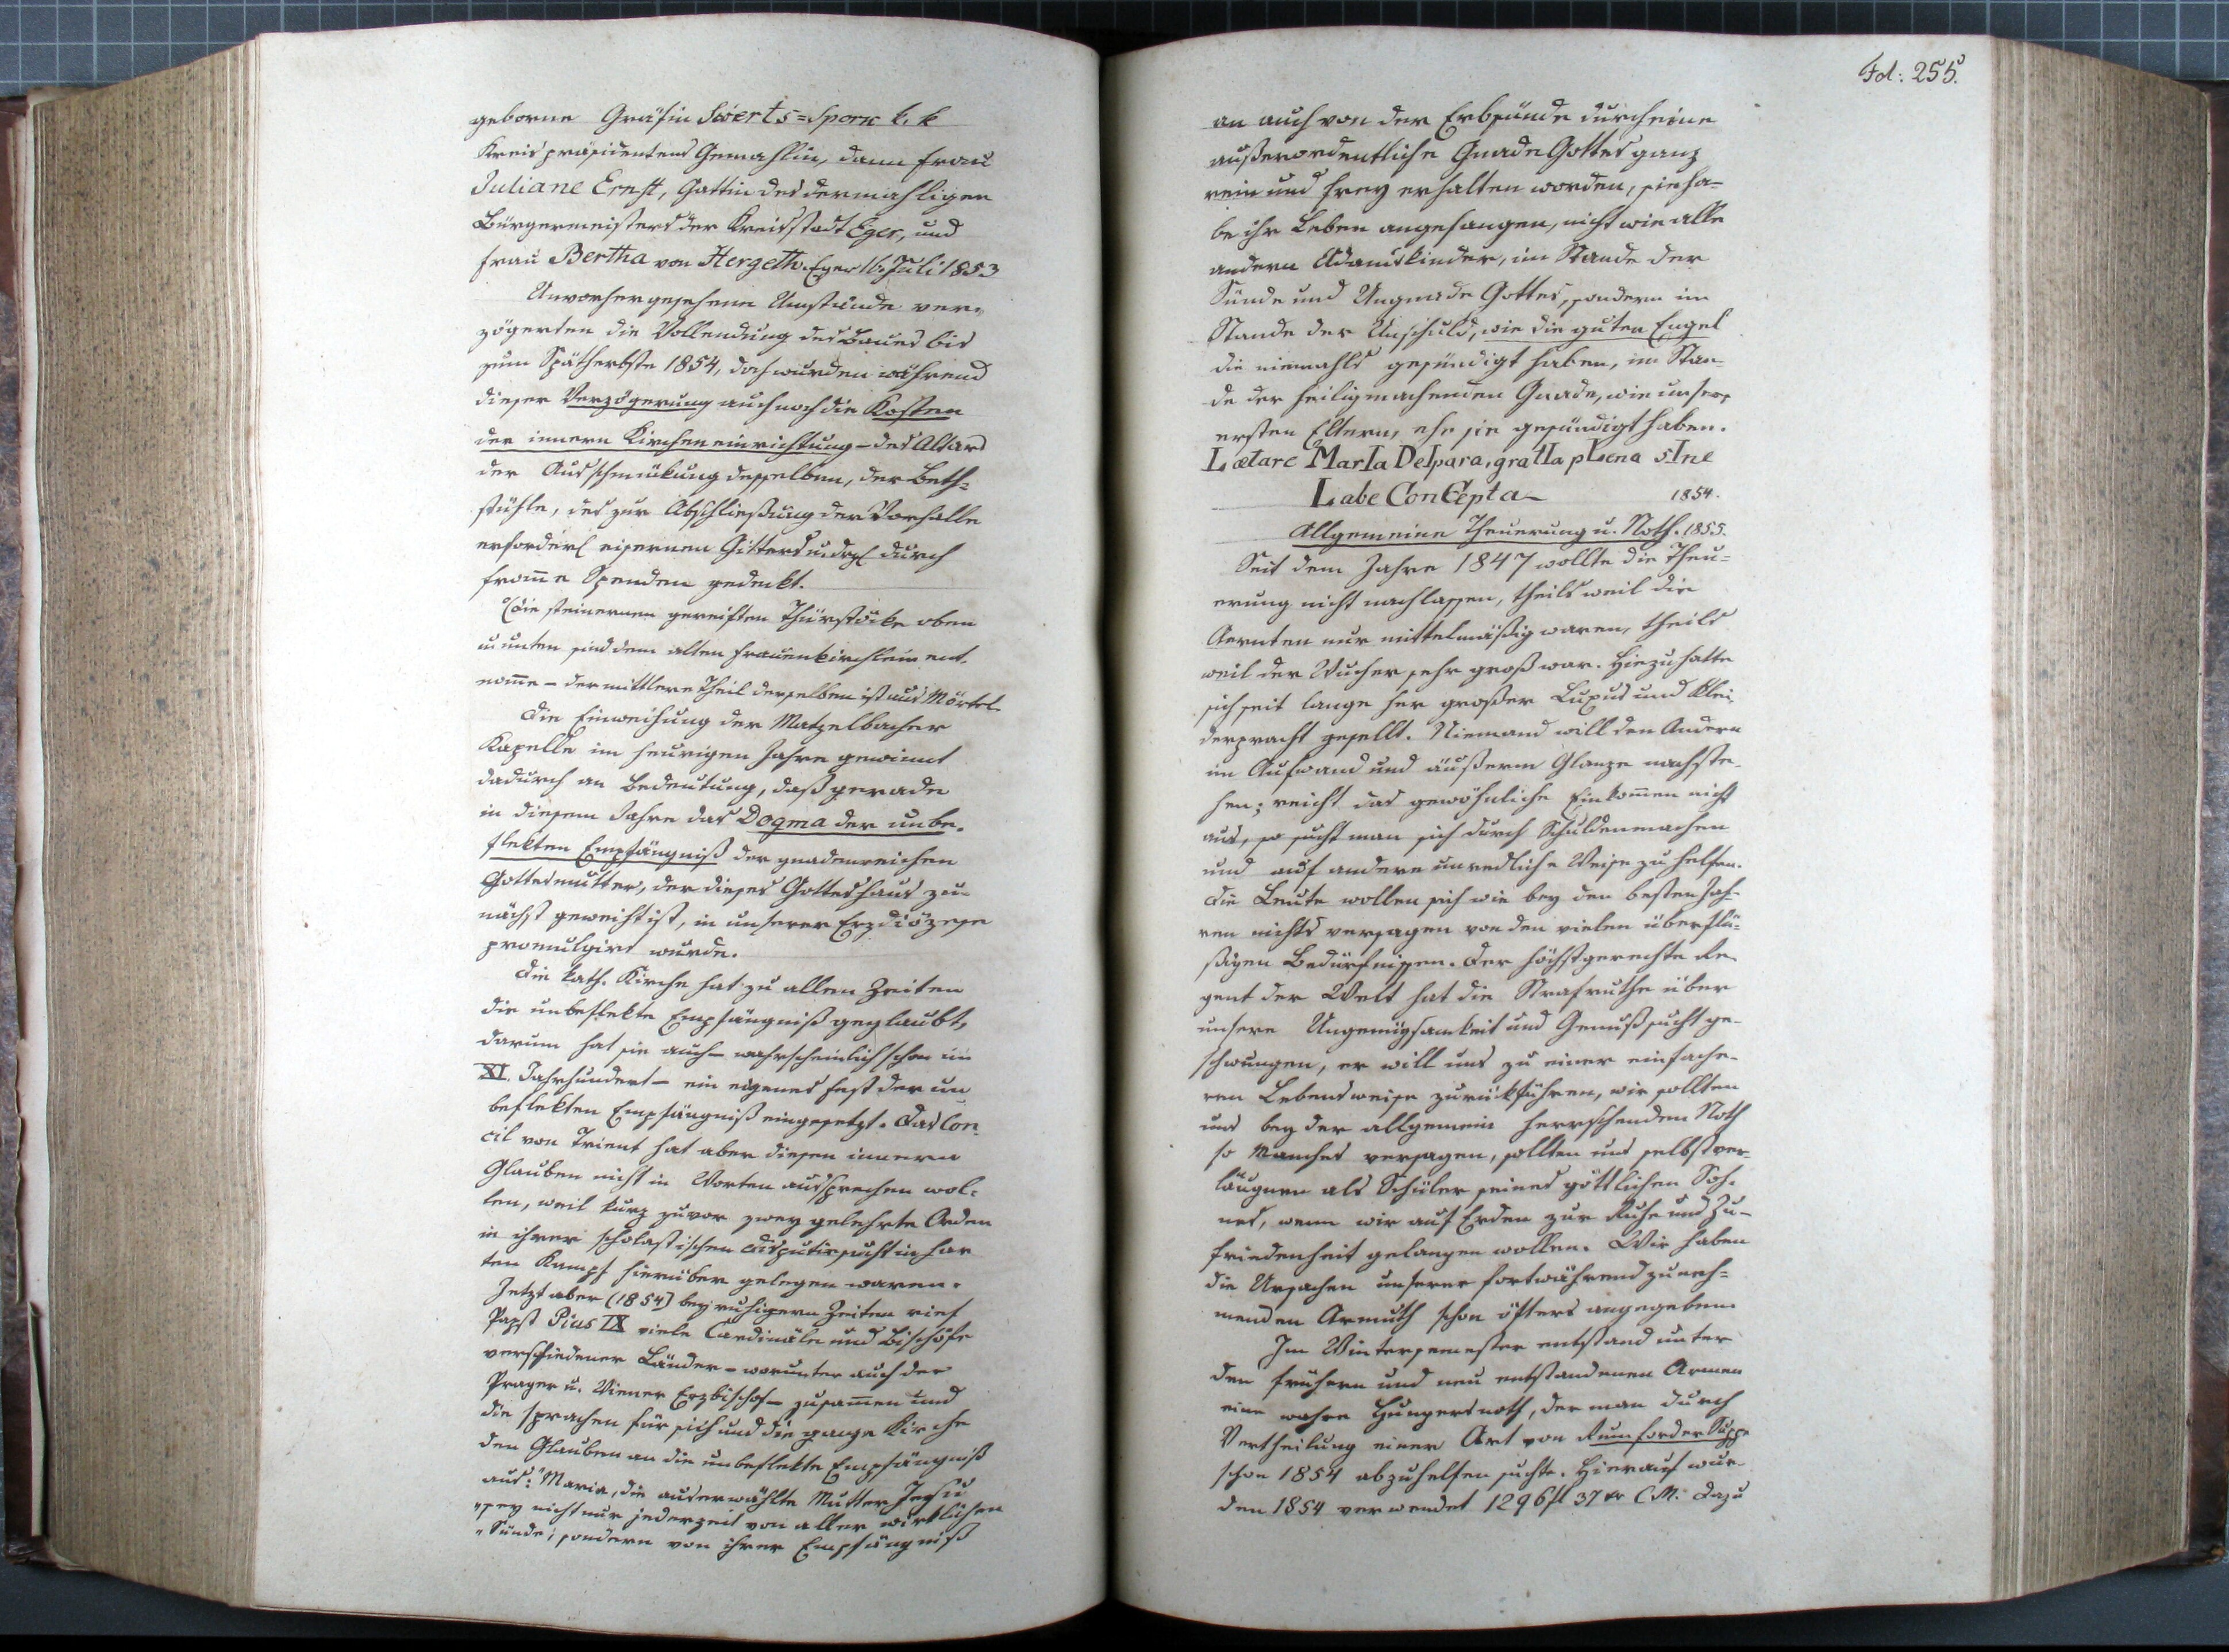 geborne Gräfin Swerts=Spork k. k
Kreispräsidentens Gemahlin, dann Frau
Juliane Ernst, Gattin des dermahligen
Bürgermeisters der Kreisstadt Eger, und
Frau Bertha von Hergeth. Eger 16. Juli 1853
Unvorhergesehene Umstände ver-
zögerten die Vollendung des Baues bis
zum Spätherbste 1854, doch wurden während
dieser Verzögerung auch noch die Kosten
der innern Kircheneinrichtung – des Altars
der Ausschmükung desselben, der Beth-
stühle, des zur Abschließung der Vorhalle
erforderl eisernen Gitters u. dgl durch
from̄e Spenden gedekt.
die steinernen gereiften Thürstöke oben
u. unten sind dem alten Frauenkirchlein ent-
nom̄e – der mittlere Theil derselben ist aus Mörtel
Die Einweihung der Matzelbacher
Kapelle im heurigen Jahre gewinnt
dadurch an Bedeutung, daß gerade
in diesem Jahre das Dogma der unbe-
flekten Empfängniß der gnadenreichen
Gottesmutter, der dieses Gotteshaus zu-
nächst geweiht ist, in unserer Erzdiözese
promulgirt wurde.
Die kath. Kirche hat zu allen Zeiten
die unbeflekte Empfängniß geglaubt,
darum hat sie auch – wahrscheinlich schon im
XI. Jahrhundert – ein eigenes Fest der un
beflekten Empfängniß eingesetzt. Das Con-
cil von Trient hat aber diesen innern
Glauben nicht in Worten aussprechen wol-
len, weil kurz zuvor zwey gelehrte Orden
in ihrer scholastischen Disputirsucht in har
ten Kampf hierüber gelegen waren.
Jetzt aber (1854) bey ruhigern Zeiten rief
Papst Pius IX viele Cardinäle und Bischöfe
verschiedener Länder – worunter auch der
Prager u. Wiener Erzbischof – zusam̄en und
die sprachen für sich und die ganze Kirche
den Glauben an die unbeflekte Empfängniß
aus: "Maria, die auserwählte Mutter Jesu
"sey nicht nur jederzeit von aller wirklichen
"Sünde; sondern von ihrer Empfängniß
Fol: 255.
an auch von der Erbsünde durch eine
außerordentliche Gnade Gottes ganz
rein und frey erhalten worden, sie ha-
be ihr Leben angefangen, nicht wie alle
andern Adamskinder, im Stande der
Sünde und Ungnade Gottes, sondern im
Stande der Unschuld, wie die guten Engel
die niemahls gesündigt haben, im Stan-
de der heiligmachenden Gnade, wie unsere
ersten Eltern, ehe sie gesündigt haben.
Lætare MarIa DeIpara, gratIa pLena sIne
Labe ConCepta 1854.
Allgemeine Theuerung u. Noth. 1855.
Seit dem Jahre 1847 wollte die Theu-
erung nicht nachlassen, theils weil die
Aernten nur mittelmäßig waren, theils
weil der Wucher sehr groß war. Hiezu hatte
sich seit lange her großer Luxus und Klei-
derpracht gesellt. Niemand will den Andern
im Aufwand und äußerm Glanze nachste-
hen; reicht das gewöhnliche Einkom̄en nicht
aus, so sucht man sich durch Schuldenmachen
und auf andere unredliche Weise zu helfen.
Die Leute wollen sich wie bey den besten Jah-
ren nichts versagen von den vielen überflü-
ßigen Bedürfnissen. Der höchstgerechte Re
gent der Welt hat die Strafruthe über
unsere Ungenügsamkeit und Genußsucht ge-
schwungen, er will uns zu einer einfache-
ren Lebensweise zurükführen, wir sollten
uns bey der allgemein herrschenden Noth
so Manches versagen, sollten uns selbst ver-
läugnen als Schüler seines göttlichen Soh-
nes, wenn wir auf Erden zur Ruhe und Zu-
friedenheit gelangen wollen. Wir haben
die Ursachen unserer fortwährend zuneh-
menden Armuth schon öfters angegeben.
Im Wintersemester entstand unter
den frühern und neu entstandenen Armen
eine wahre Hungersnoth, der man durch
Vertheilung einer Art von Rumforder Suppe
schon 1854 abzuhelfen suchte. Hierauf wur-
den 1854 verwendet 1296 fl 37 xr C.M. Dazu